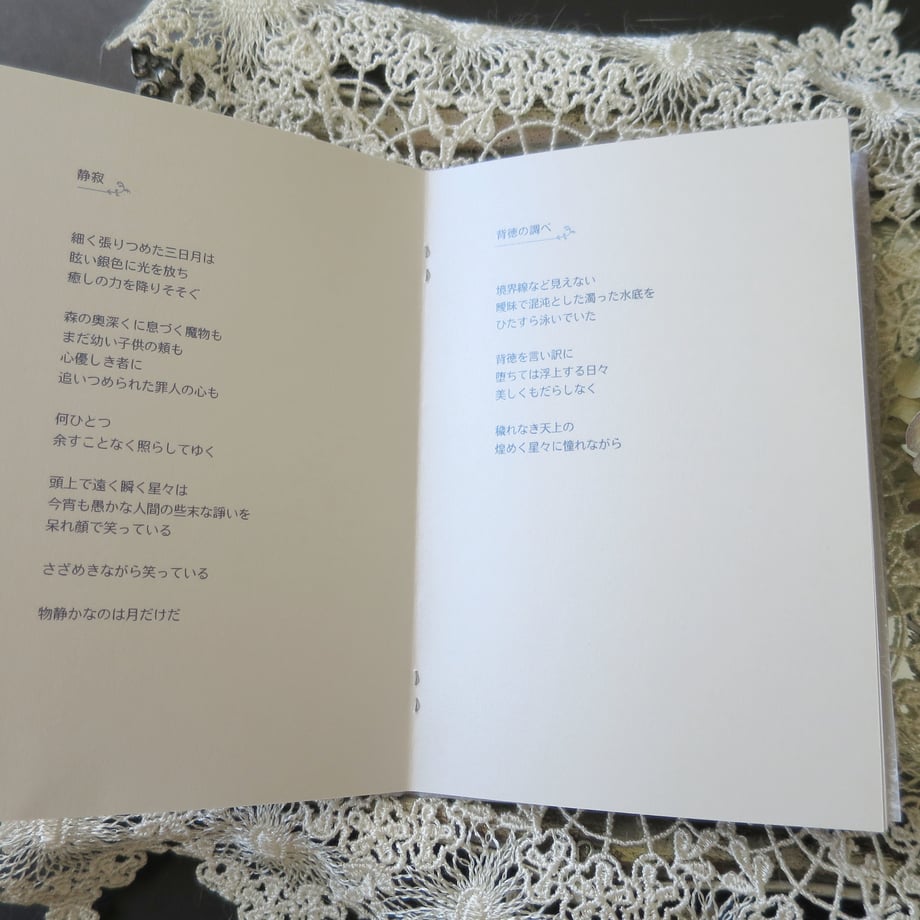 静寂
細く張りつめた三日月は
眩い銀色に光を放ち
癒しの力を降りそそぐ
森の奥深くに息づく魔物も
まだ幼い子供の頬も
心優しき者に
追いつめられた罪人の心も
何ひとつ
余すことなく照らしてゆく
頭上で遠く瞬く星々は
今宵も愚かな人間の些末な諍いを
呆れ顔で笑っている
さざめきながら笑っている
物静かなのは月だけだ
背徳の調べ
境界線など見えない
曖昧で混沌とした濁った水底を
ひたすら泳いでいた
背徳を言い訳に
堕ちては浮上する日々
美しくもだらしなく
穢れなき天上の
煌めく星々に憧れながら